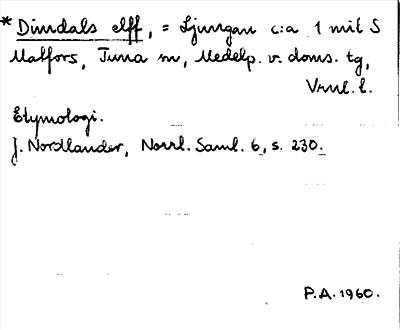 * Dindals elff, = Ljungan c:a 1 mil S
Matfors, Tuna sn, Medelp. v. doms. tg,
Vrml. l.
Etymologi.
J. Nordlander, Norrl. Saml. 6, s. 230.
P.A. 1960.